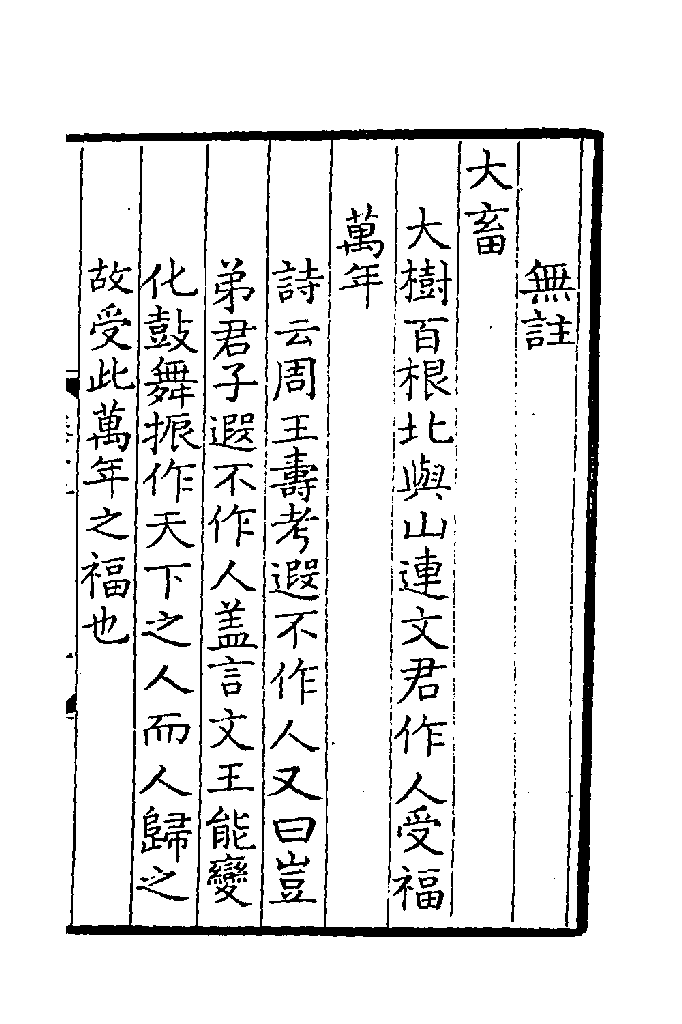 無註
大畜
大樹百根北與山連文君作人受福
萬年
詩云周王壽考遐不作人又曰豈
弟君子遐不作人盖言文王能變
化鼓舞振作天下之人而人歸之
故受此萬年之福也